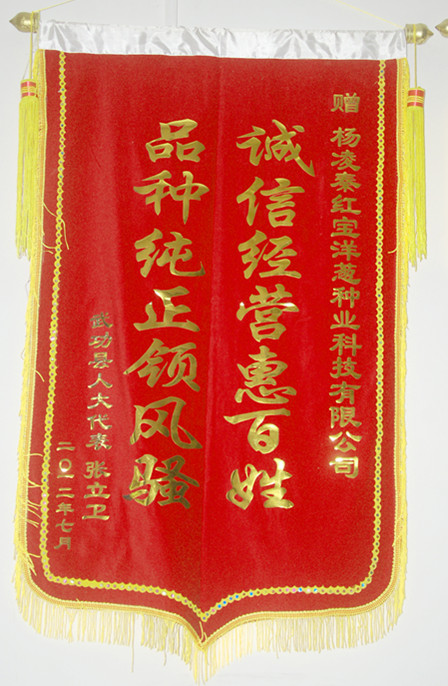 赠 杨凌秦红宝洋葱种业科技有限公司
诚信经营惠百姓
品种纯正领风骚
武功县人大代表 张立卫
二〇一二年七月